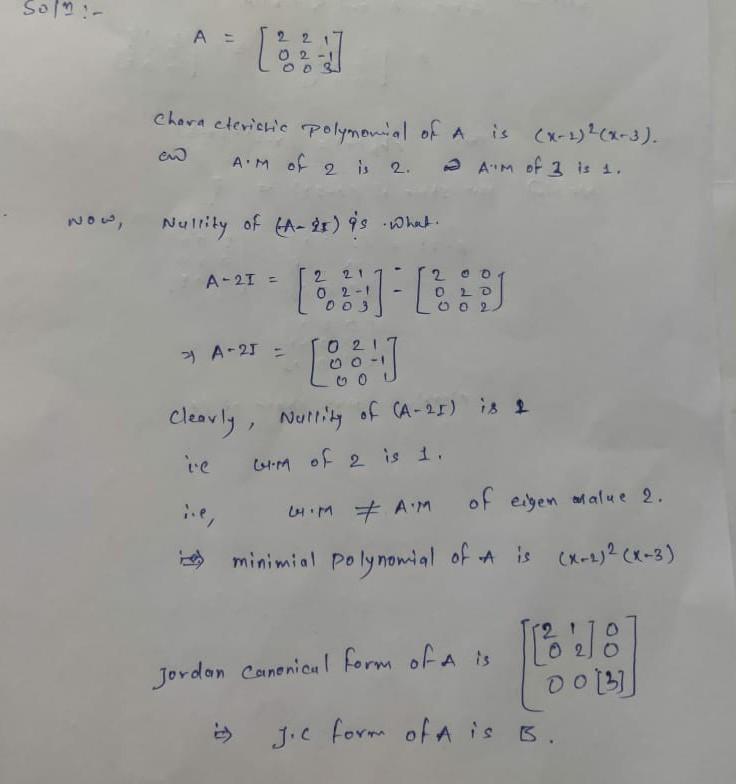 Soln :-
A = [2 2 1
0 2 -1
0 0 3]
Characteristic Polynomial of A is (x-2)²(x-3).
and A.M of 2 is 2. A.M of 3 is 1.
Now, Nullity of (A-2I) is what.
A-2I = [2 2 1
0 2 -1
0 0 3] - [2 0 0
0 2 0
0 0 2]
⇒ A-2I = [0 2 1
0 0 -1
0 0 1]
Clearly, Nullity of (A-2I) is 1
i.e G.M of 2 is 1.
i.e, G.M ≠ A.M of eigen value 2.
⇒ minimial Polynomial of A is (x-2)²(x-3)
Jordan Canonical form of A is [[2 1
0 2] 0
0
0 0 [3]]
⇒ J.C form of A is B.